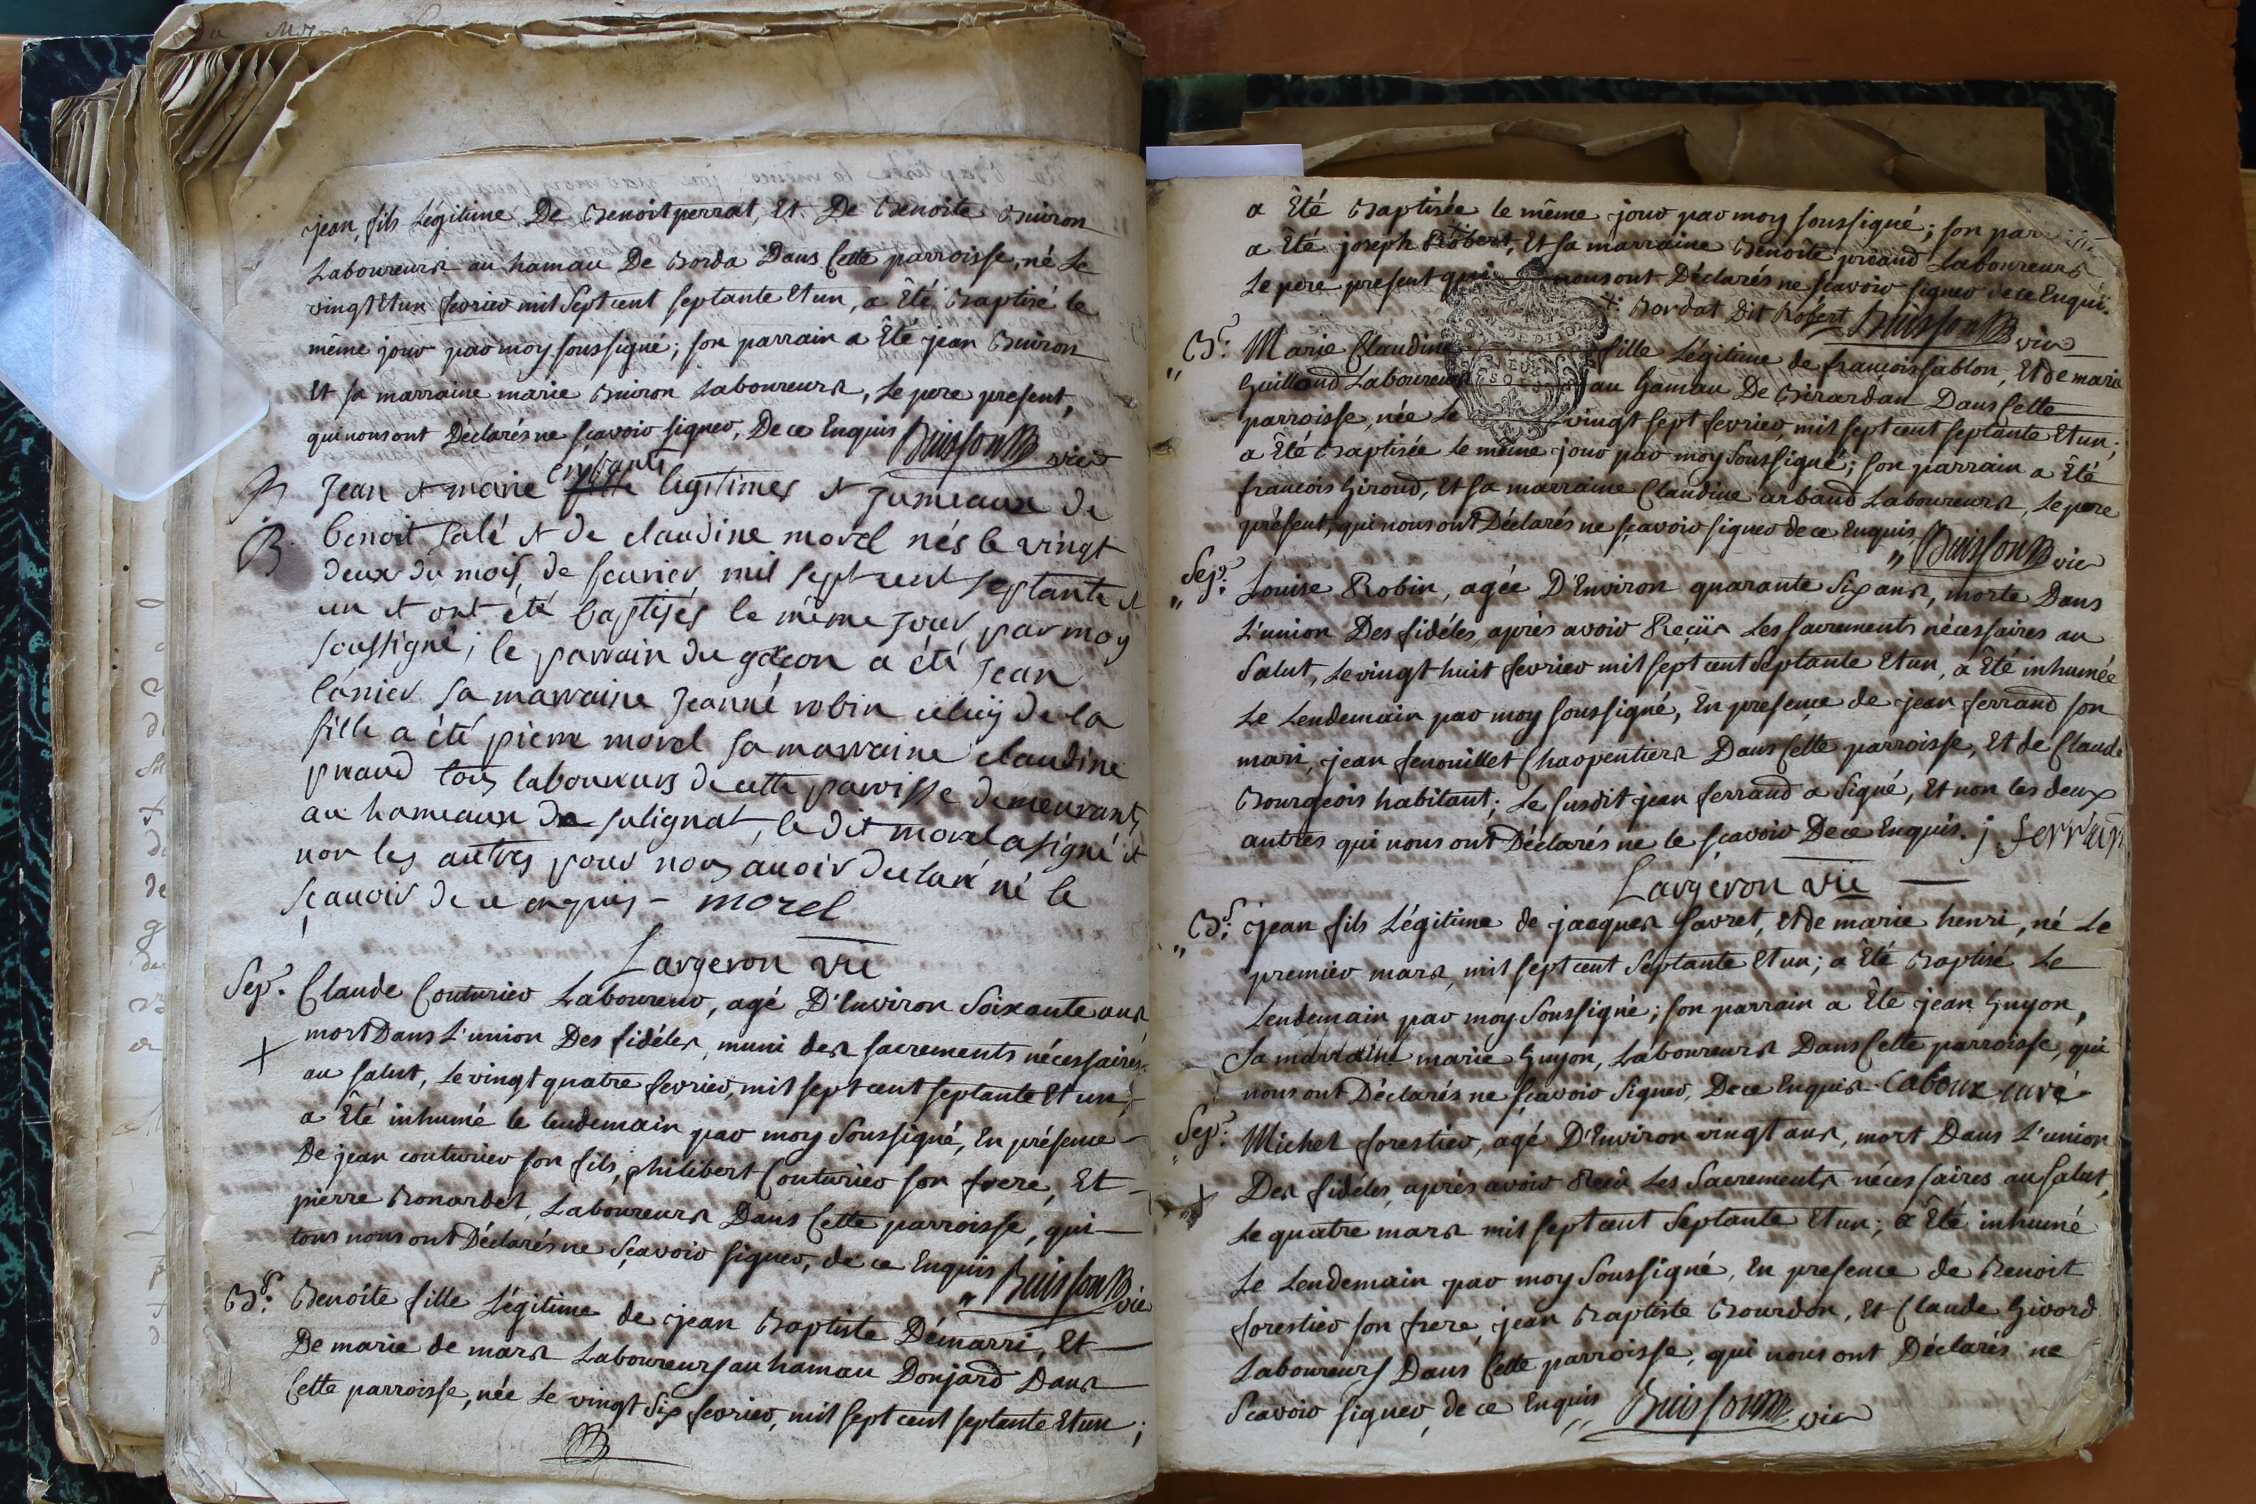 jean, fils Légitime De Benoit perrat, Et De Benoite Buiron
Laboureurs au hamau De Borda Dans Cette parroisse, né Le
vingt Et un fevrier mil Sept cent Septante Et un, a Êté Baptisé le
même jour par moy soussigné; son parrain a Êté jean Buiron
Et sa marraine marie Buiron Laboureurs, Le pere present,
qui nous ont Déclarés ne scavoir signer, De ce Enquis Buisson vic
B Jean et marie enfants legitimes et jumeaux de
B. benoit salé et de claudine morel nés le vingt
deux du mois de fevrier mil sept cent septante et
un et ont été baptisés le même jour par moy
soussigné; le parrain du garcon a été Jean
sa marraine Jeanne robin celuy de la
fille a été pierre morel sa marraine claudine
preaud tous laboureurs de cette paroisse demeurants
au hameaux de sulignat, le dit morel a signé et
non les autres pour nous avoir declaré né le
sçavoir de ce enquis - morel
Largeron vic
Sep. Claude Couturier Laboureur, agé D'Environ Soixante ans
mort Dans L'union Des fidéles, muni des sacrements nécessaires
au salut, Le vingt quatre fevrier, mil sept cent septante Et un,
a Êté inhumé le lendemain par moy soussigné, En présence
De jean couturier son fils, philibert Couturier son frere, Et
pierre Bonardet, Laboureurs Dans Cette parroisse, qui
tous nous ont Déclarés ne sçavoir signer, de ce Enquis Buisson vic
B. Benoite fille Légitime de jean Baptiste Démarri, Et
De marie de mars Laboureurs au hamau Donjard Dans
Cette parroisse, née Le vingt Six fevrier, mil Sept cent septante Et un;
a Êté Baptisée le même jour par moy soussigné; son
a Êté joseph Robert, Et sa marraine Benoite préaud Laboureurs
Le pere present qui nous ont Déclarés ne scavoir signer de ce Enquis.
Bordat Dit Robert Buisson vic
B. Marie Claudine fille Légitime de françois sablon, Et de marie
Guilloud Laboureurs au hamau De Birardan Dans Cette
parroisse, née Le vingt sept fevrier, mil sept cent septante Et un;
a Êté Baptisée le même jour par moy Soussigné; son parrain a Êté
francois Giroud, Et sa marraine Claudine arbaud Laboureurs, Le pere
présent, qui nous ont Déclarés ne sçavoir signer de ce Enquis Buisson vic
Sep. Louise Robin, agée D'Environ quarante Six ans, morte Dans
L'union Des fidéles, aprés avoir Reçus Les sacrements nécessaires au
Salut, Le vingt huit fevrier mil sept cent septante Et un, a Êté inhumée
Le Lendemain par moy soussigné, En presençe de jean ferrand son
mari, jean fenouillet Charpentiers Dans Cette parroisse, Et de Claude
Bourgeois habitant; Le susdit jean ferrand a Signé, Et non les deux
autres qui nous ont Déclarés ne le sçavoir De ce Enquis. j ferran
Largeron vic
B. jean fils Légitime de jacques savret, Et de marie henri, né Le
premier mars, mil sept cent Septante Et un; a Êté Baptisé Le
Lendemain par moy Soussigné; son parrain a Êté jean Guyon,
Sa marraine marie Guyon, Laboureurs Dans Cette parroisse, qui
nous ont Déclarés ne sçavoir Signer, De ce Enquis Caboux curé
Sep. Michel forestier, agé D'Environ vingt ans, mort Dans L'union
Des fidéles, aprés avoir Reçû Les Sacrements nécessaires au salut,
Le quatre mars mil sept cent Septante Et un; a Êté inhumé
Le Lendemain par moy Soussigné, En presence de Benoit
forestier son frere, jean Baptiste Bourdon, Et Claude Givord
Laboureurs Dans Cette parroisse, qui nous ont Déclarés ne
Scavoir signer, de ce Enquis Buisson vic